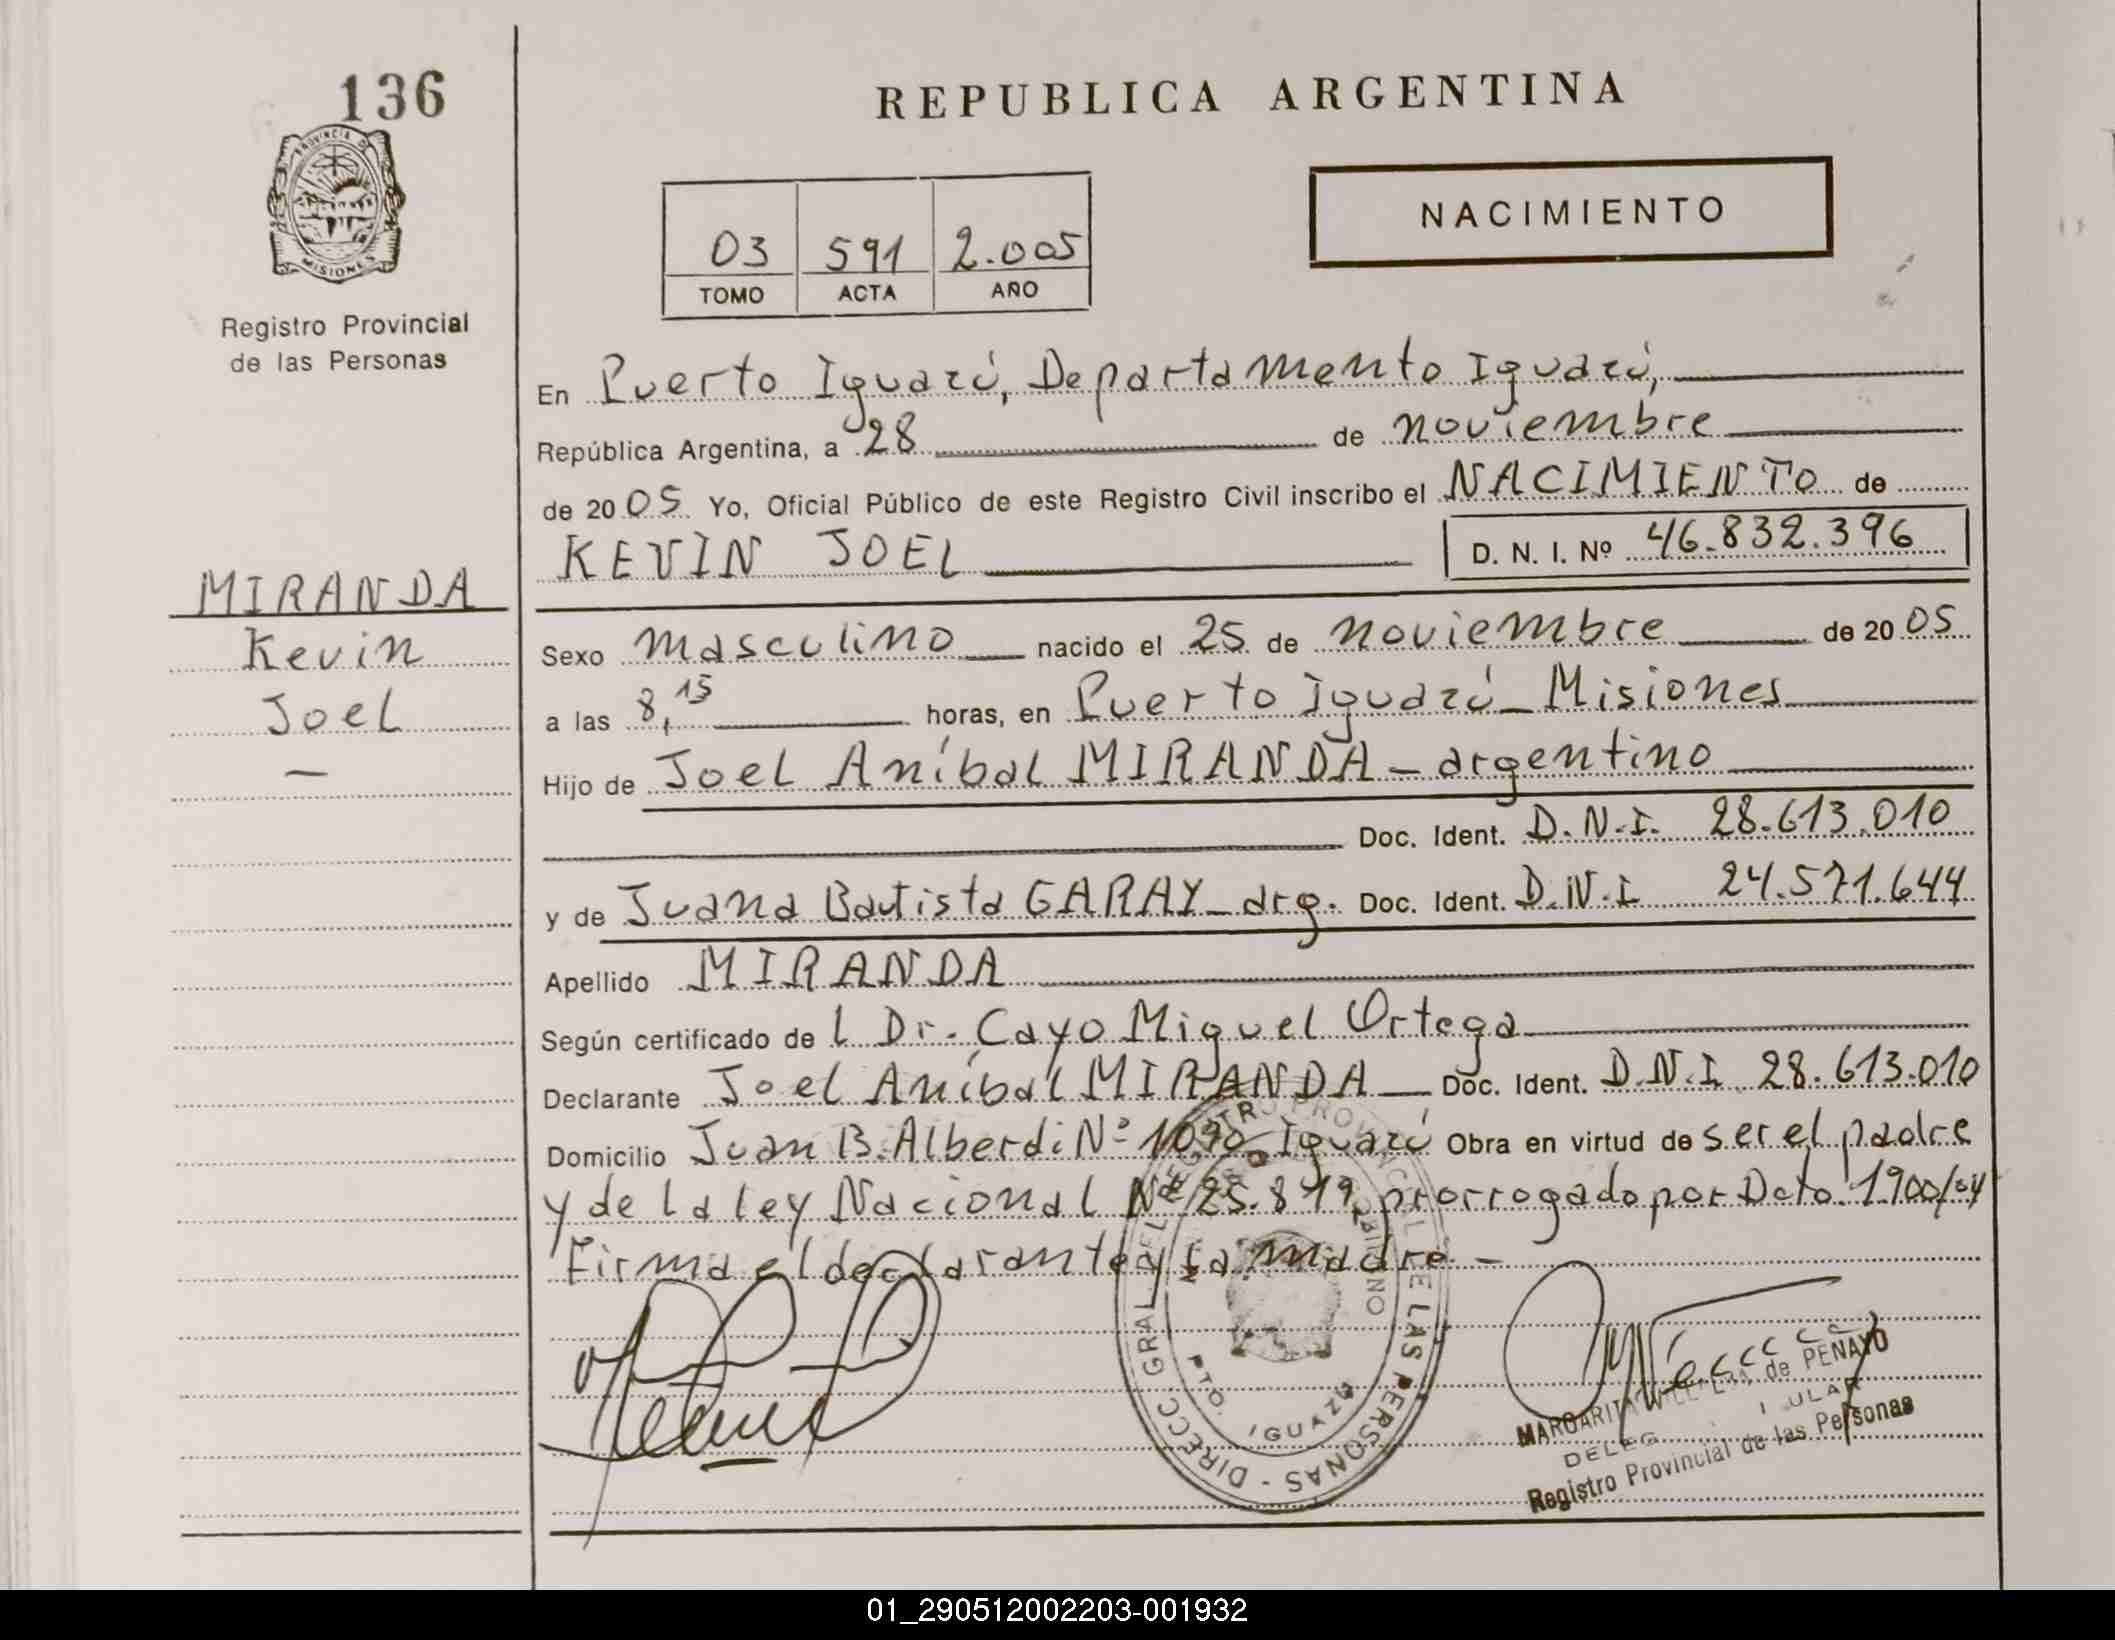 136
REPUBLICA ARGENTINA
PROVINCIA DE
MISIONES
NACIMIENTO
03 591 2.005
TOMO ACTA AÑO
Registro Provincial
de las Personas
En Puerto Iguazú, Departamento Iguazú,
República Argentina, a 28 de noviembre
de 2005 Yo, Oficial Público de este Registro Civil inscribo el NACIMIENTO de
KEVIN JOEL D. N. I. Nº 46.832.396
MIRANDA
Kevin
Joel
Sexo masculino nacido el 25 de noviembre de 2005
a las 8,15 horas, en Puerto Iguazú - Misiones
Hijo de Joel Aníbal MIRANDA - argentino
Doc. Ident. D.N.I. 28.613.010
y de Juana Bautista GARAY - arg. Doc. Ident. D.N.I 24.571.644
Apellido MIRANDA
Según certificado de l Dr. Cayo Miguel Ortega
Declarante Joel Aníbal MIRANDA Doc. Ident. D.N.I 28.613.010
Domicilio Juan B. Alberdi Nº 1090 Iguazú Obra en virtud de ser el padre
y de la ley Nacional Nº 25.819 prorrogado por Dcto. 1900/04
Firma el declarante y la madre -
DIRECC GRAL DEL REGISTRO PROVINCIAL DE LAS PERSONAS -
PTO. IGUAZU
MARGARITA de PENAYO
Registro Provincial de las Personas
01_290512002203-001932